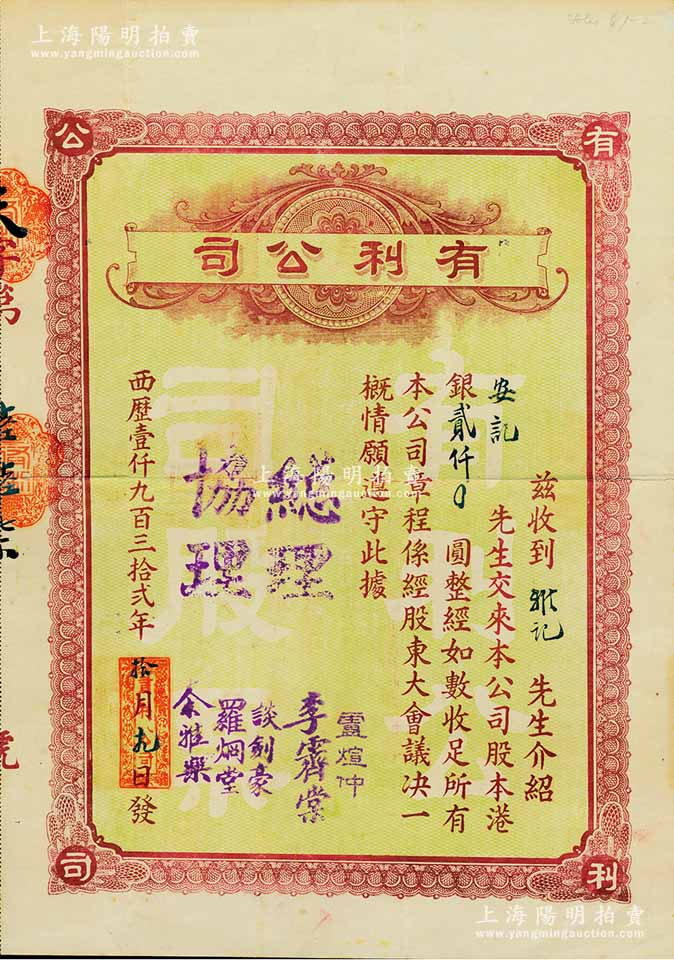 上海陽明拍賣
www.yangmingauction.com
有利公司
有利公司
茲收到 雅記 先生介紹
安記 先生交來本公司股本港
銀貳仟0圓整經如數收足所有
本公司章程係經股東大會議决一
概情願遵守此據
總理
協理
李霽棠
談劍豪
羅炳堂
余雅樂
西歷壹仟九百三拾弍年拾月九日發
字第
號
上海陽明拍賣
www.yangmingauction.com
上海陽明拍賣
www.yangmingauction.com